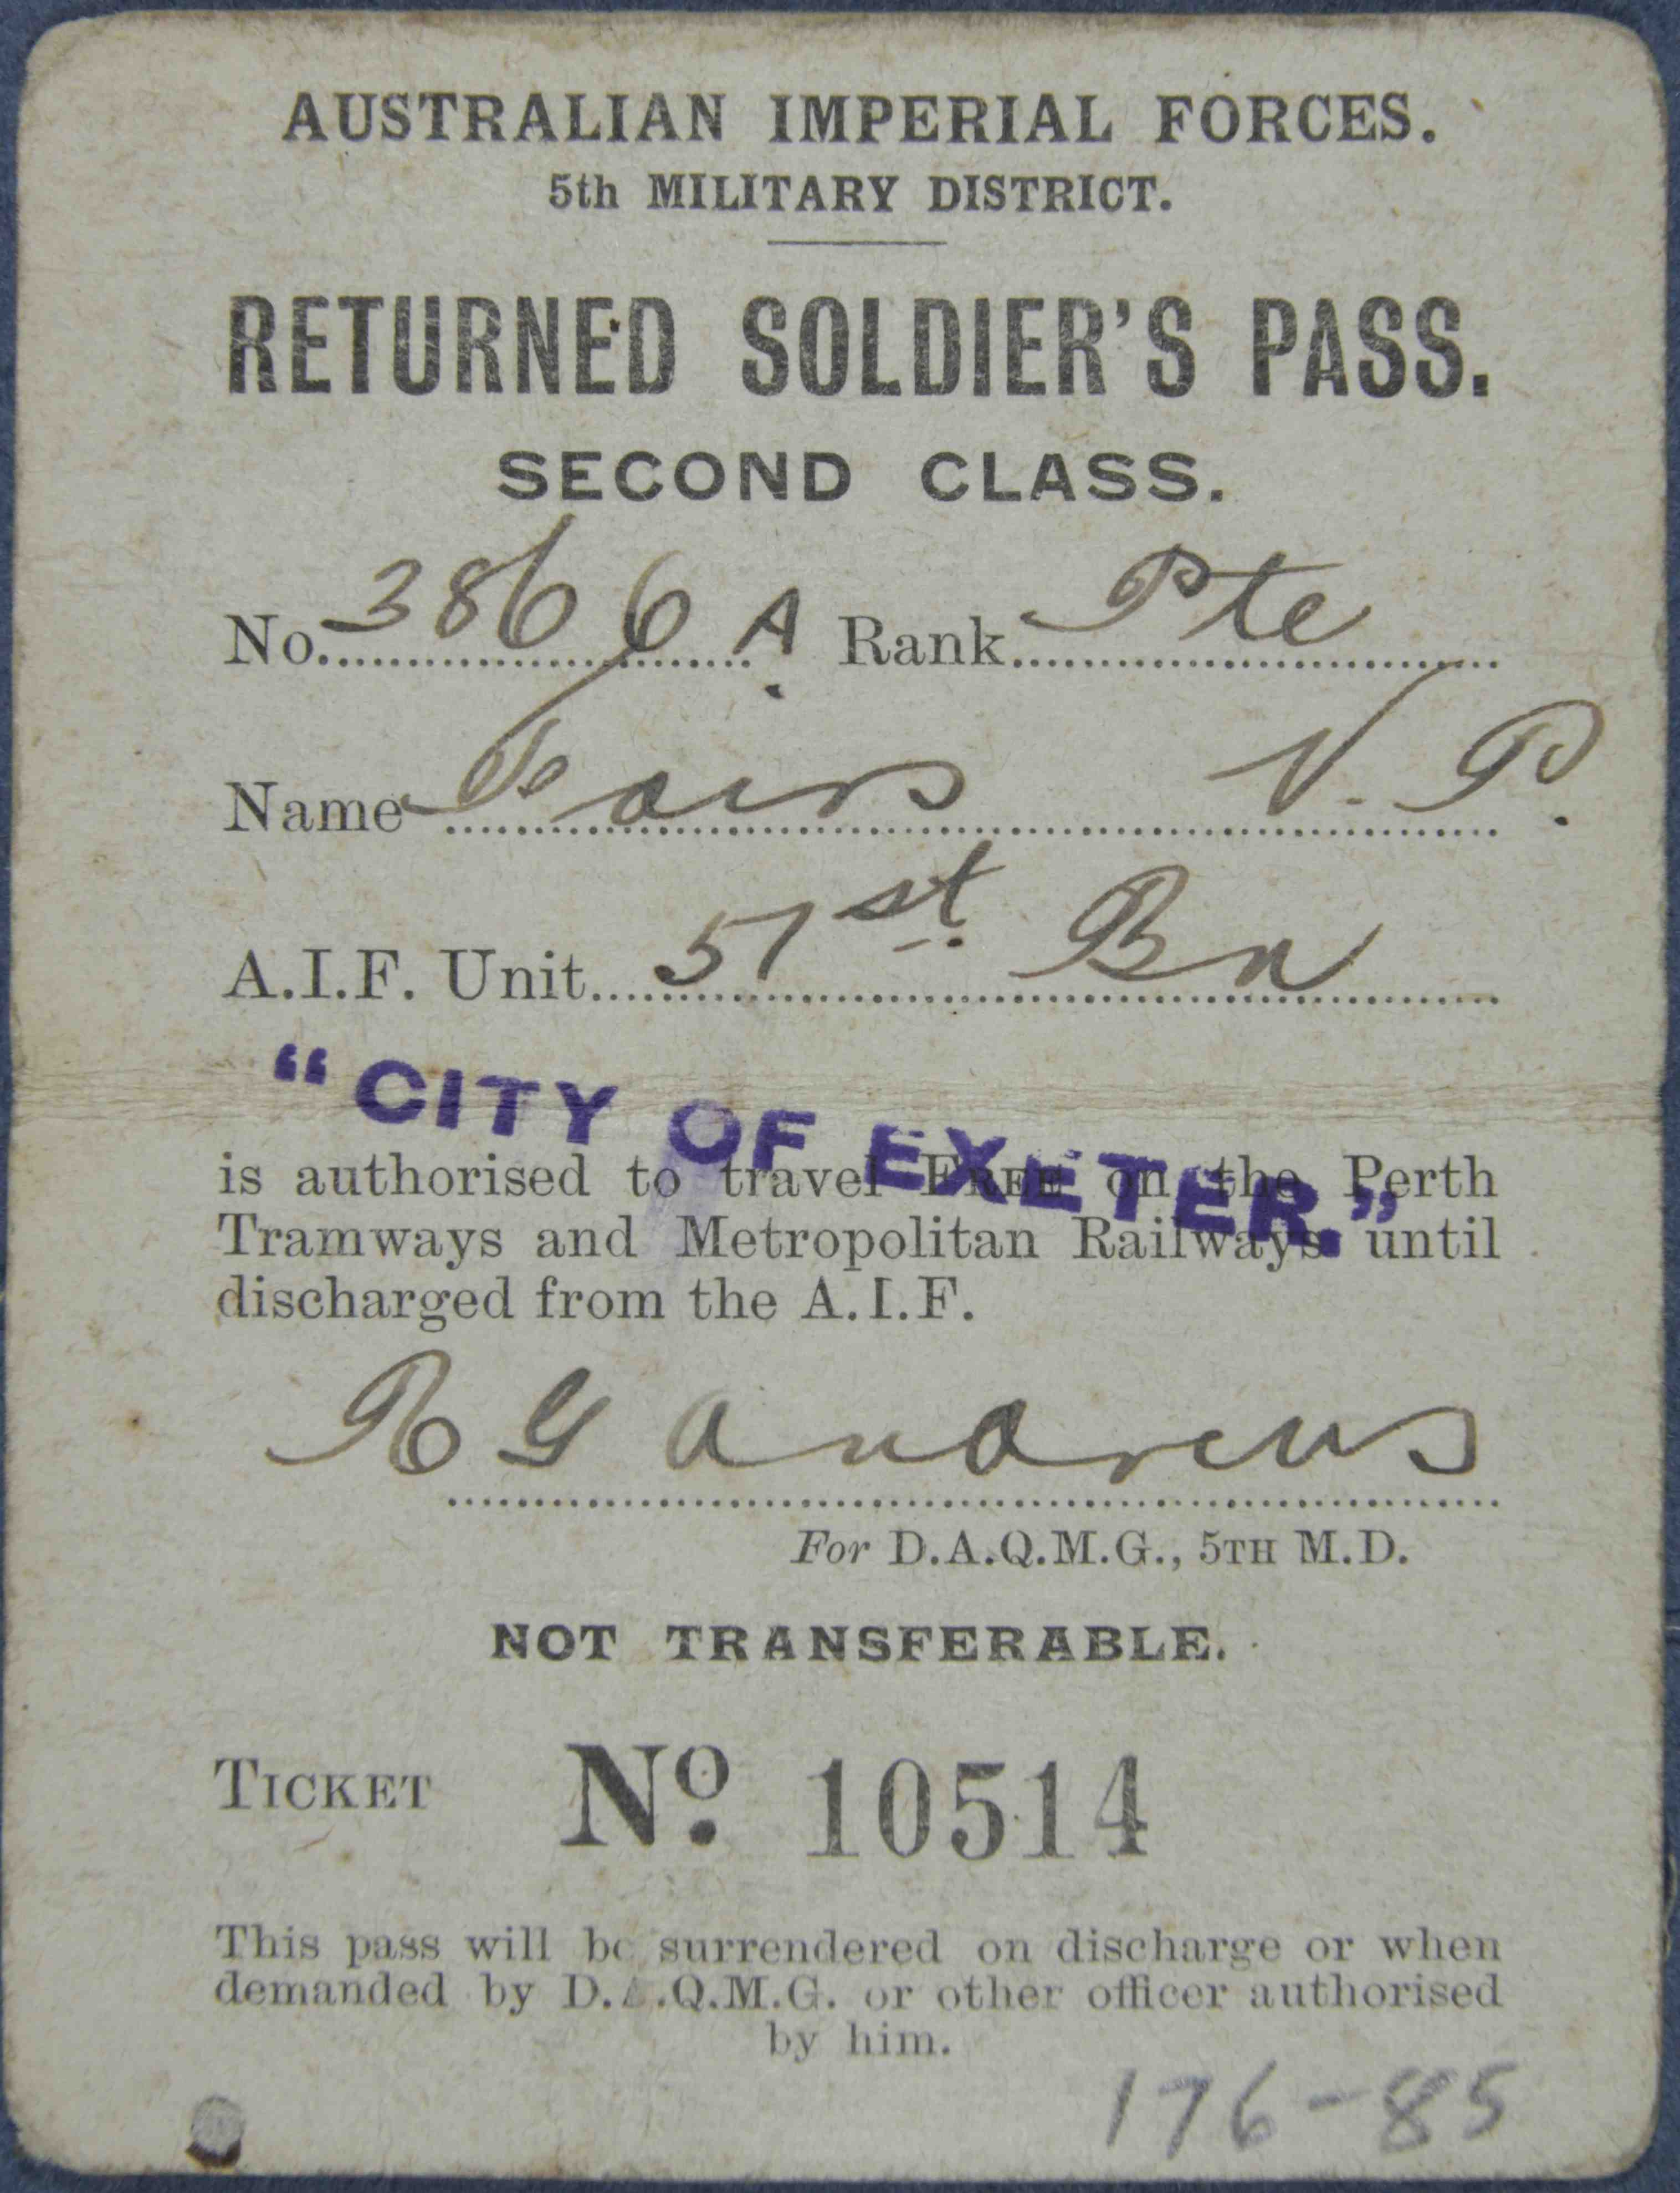 AUSTRALIAN IMPERIAL FORCES.
5th MILITARY DISTRICT.
RETURNED SOLDIER'S PASS.
SECOND CLASS.
No. 3866 A Rank Pte
Name V. P.
A.I.F. Unit 51st Bn
"CITY OF EXETER."
is authorised to travel FREE on the Perth
Tramways and Metropolitan Railways until
discharged from the A.I.F.
R G Andrews
For D.A.Q.M.G., 5TH M.D.
NOT TRANSFERABLE.
TICKET No. 10514
This pass will be surrendered on discharge or when
demanded by D.A.Q.M.G. or other officer authorised
by him.
176-85